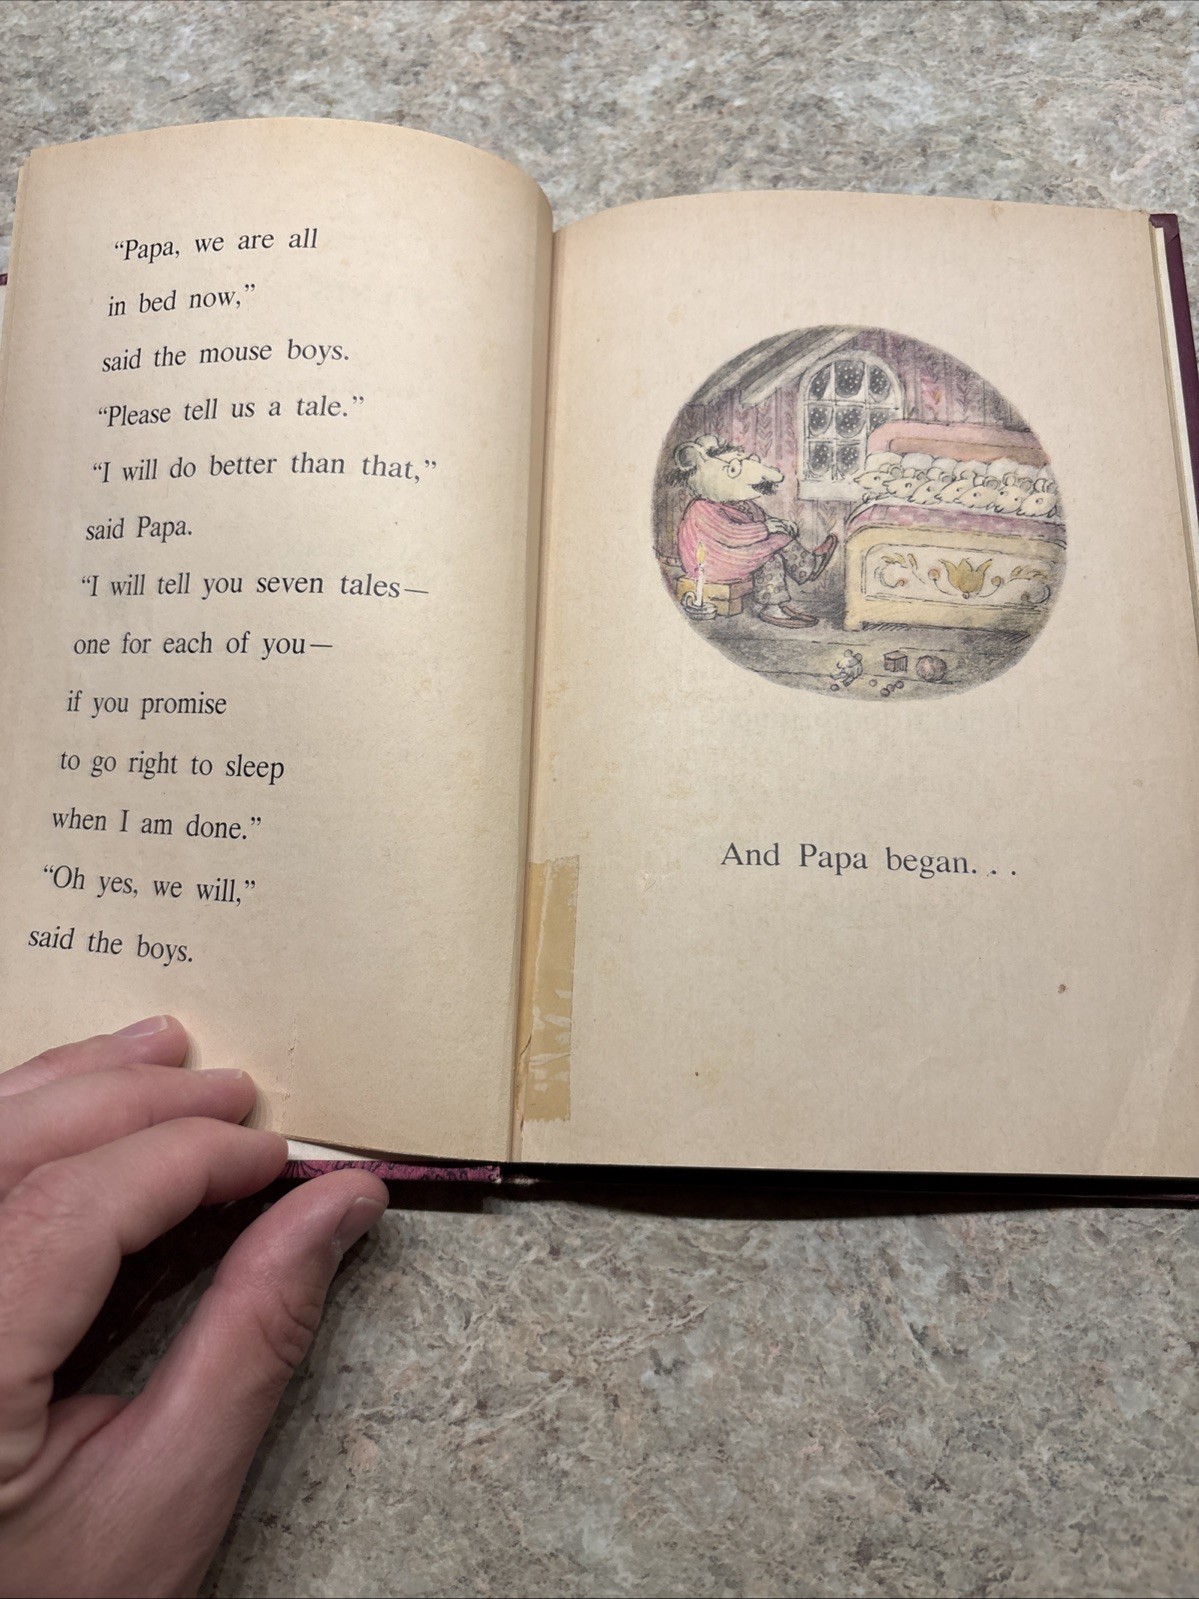 “Papa, we are all
in bed now,”
said the mouse boys.
“Please tell us a tale.”
“I will do better than that,”
said Papa.
“I will tell you seven tales—
one for each of you—
if you promise
to go right to sleep
when I am done.”
“Oh yes, we will,”
said the boys.
And Papa began. . .